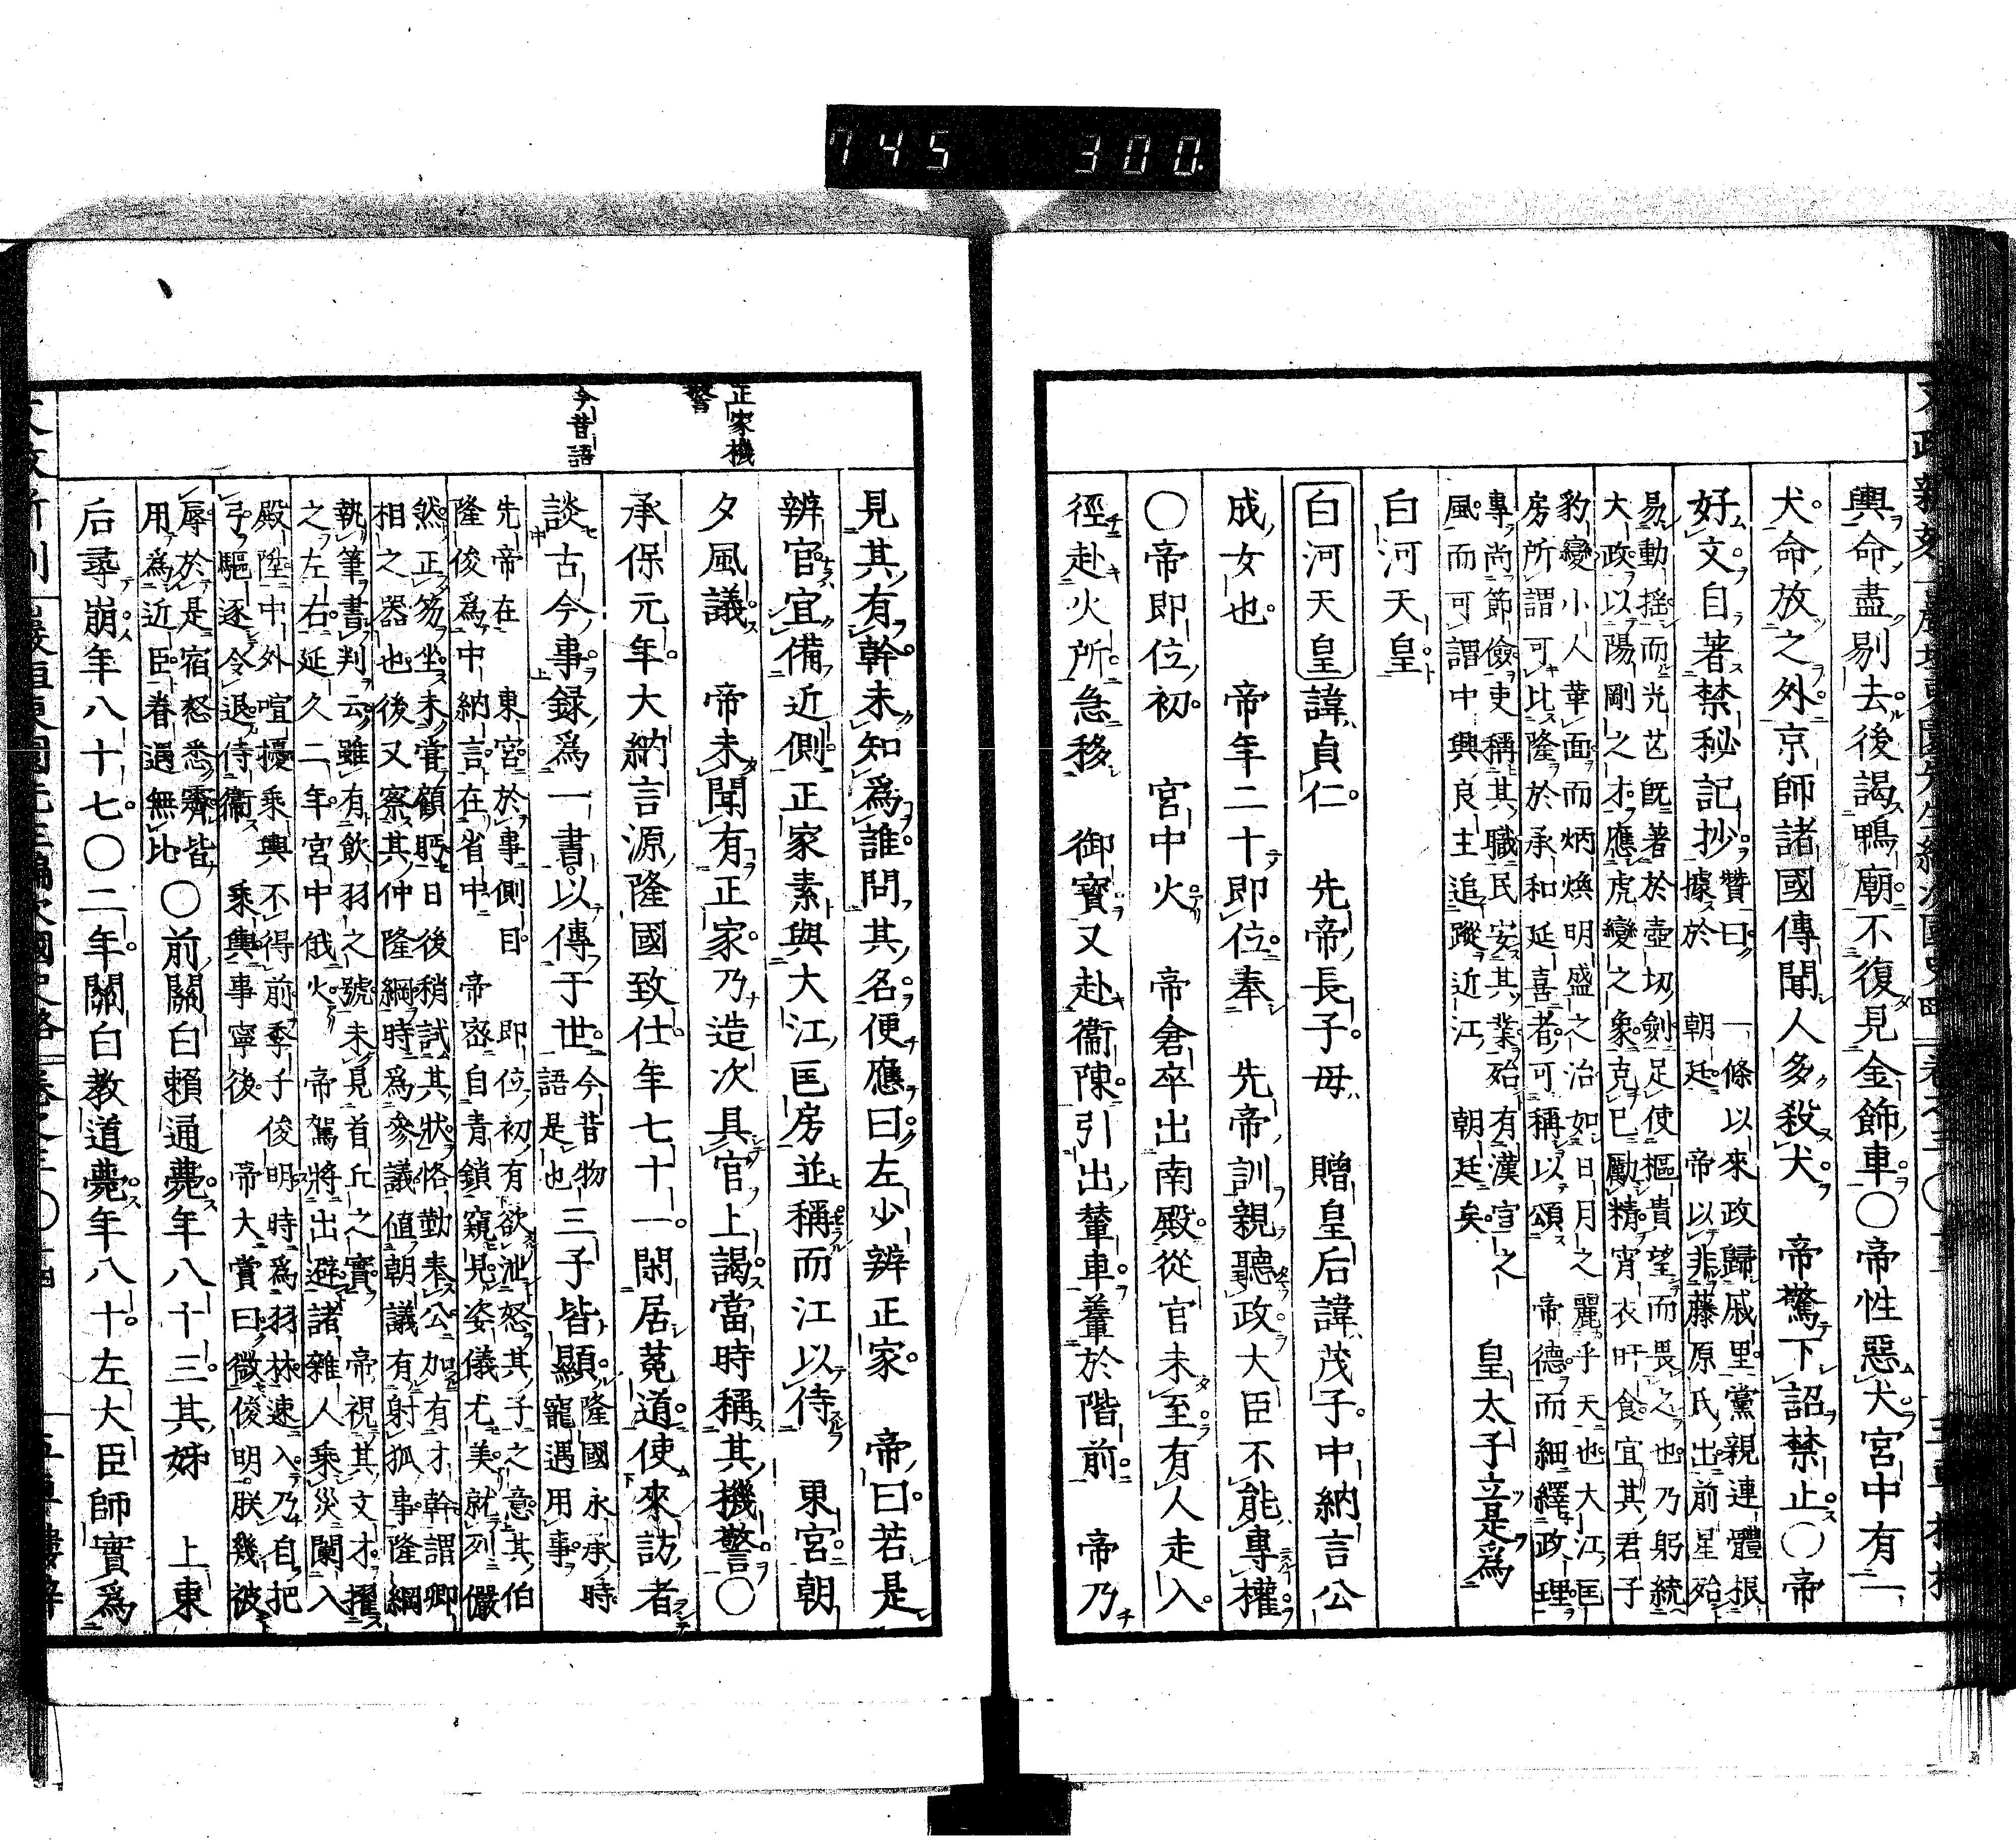 745 300.
輿命盡剔去後謁鴨廟不復見金飾車○帝性惡犬宮中有一
犬命放之外京師諸國傳聞人多殺犬 帝驚下詔禁止○帝
好文自著禁秘記抄
贊曰 一條以來政歸戚里黨親連體根
據於 朝廷 帝以非藤原氏出前星殆
易動搖而光芒既著於壺切劍足使樞貴望而畏之也乃躬統
大政以陽剛之才應虎變之象克已勵精宵衣旰食宜其君子
豹變小人革面而炳煥明盛之治如日月之麗乎天也大江匡
房所謂可比隆於承和延喜者可稱以頌 帝德而細繹政理
專尚節儉吏稱其職民安其業殆有漢宣之
風而可謂中興良主追蹤近江 朝廷矣
皇太子立是為
白河天皇
白河天皇諱貞仁 先帝長子母 贈皇后諱茂子中納言公
成女也 帝年二十即位奉 先帝訓親聽政大臣不能專權
○帝即位初 宮中火 帝倉卒出南殿從官未至有人走入
徑赴火所急移 御寶又赴衞陳引出輦車輦於階前 帝乃
正家機
警
今昔語
見其有幹未知為誰問其名便應曰左少辨正家 帝曰若是
辨官宜備近側正家素與大江匡房並稱而江以侍 東宮朝
夕風議 帝未聞有正家乃造次具官上謁當時稱其機警○
承保元年大納言源隆國致仕年七十一閑居菟道使來訪者
談古今事録為一書以傳于世
今昔物
語是也
三子皆顯
隆國永承時
寵遇用事
先帝在 東宮於事側目 即位初有欲泄怒其子之意其伯
隆俊為中納言在省中 帝密自青鎖窺見姿儀尤美就列儼
然正笏坐未嘗顧眄日後稍試其狀恪勤奉公加有才幹謂卿
相之器也後又察其仲隆綱時為參議値朝議有射狐事隆綱
執筆書判云雖有飲羽之號未見首丘之實 帝視其文才擢
之左右延久二年宮中俄火 帝駕將出避諸雜人乘災闌入
殿陛中外喧擾乘輿不得前季子俊明時為羽林速入乃自把
弓驅逐令退侍衞 乘輿事寧後 帝大賞曰微俊明朕幾被
辱於是宿怒悉霽皆
用為近臣眷遇無比
○前關白賴通薨年八十三其姊 上東
后尋崩年八十七○二年關白教道薨年八十左大臣師實為